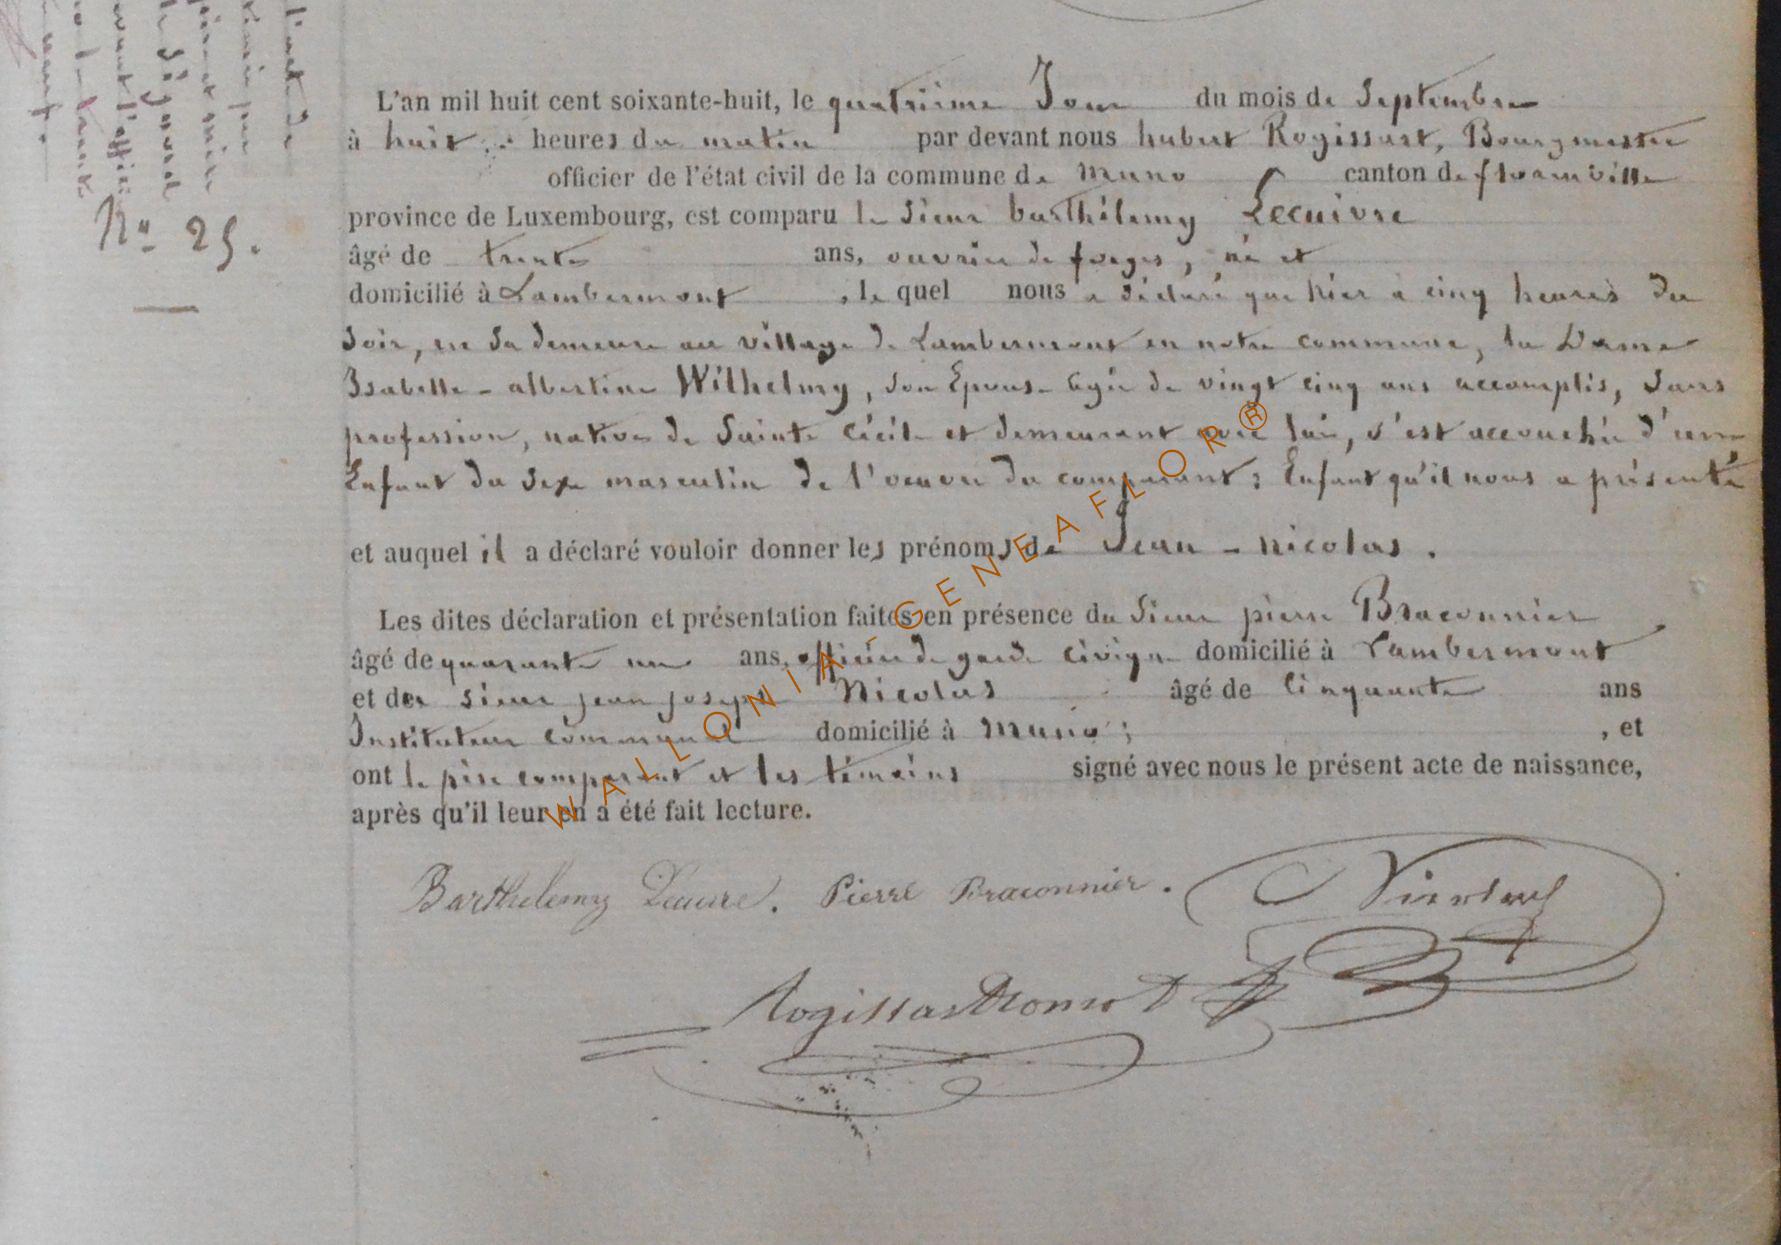 L'an mil huit cent soixante-huit, le quatrième Jour du mois de Septembre
à huit heures du matin par devant nous hubert Rogissart, Bourgmestre
officier de l'état civil de la commune de Muno canton de florenville
province de Luxembourg, est comparu le Sieur barthélemy Lecuivre
âgé de trente ans, ouvrier de forges, né et
domicilié à Lambermont, le quel nous a déclaré que hier à cinq heures du
Soir, en Sa demeure au village de Lambermont en notre commune, la Dame
Isabelle - albertine Wilhelmy, Son Epouse agée de vingt cinq ans accomplis, Sans
profession, native de Sainte Cécile et demeurant avec lui, s'est accouchée d'un
Enfant du Sexe masculin de l'oeuvre du comparant; Enfant qu'il nous a présenté
et auquel il a déclaré vouloir donner les prénoms de Jean - nicolas.
Les dites déclaration et présentation faites en présence du Sieur pierre Braconnier
âgé de quarante un ans, officier de garde civique domicilié à Lambermont
et du sieur jean joseph Nicolas âgé de Cinquante ans
Instituteur communal domicilié à Muno; , et
ont le père comparant et les témoins signé avec nous le présent acte de naissance,
après qu'il leur en a été fait lecture.
No 25.
Barthelemy Lecuivre. Pierre Braconnier.
WALLONIA-GENEAFLOR®